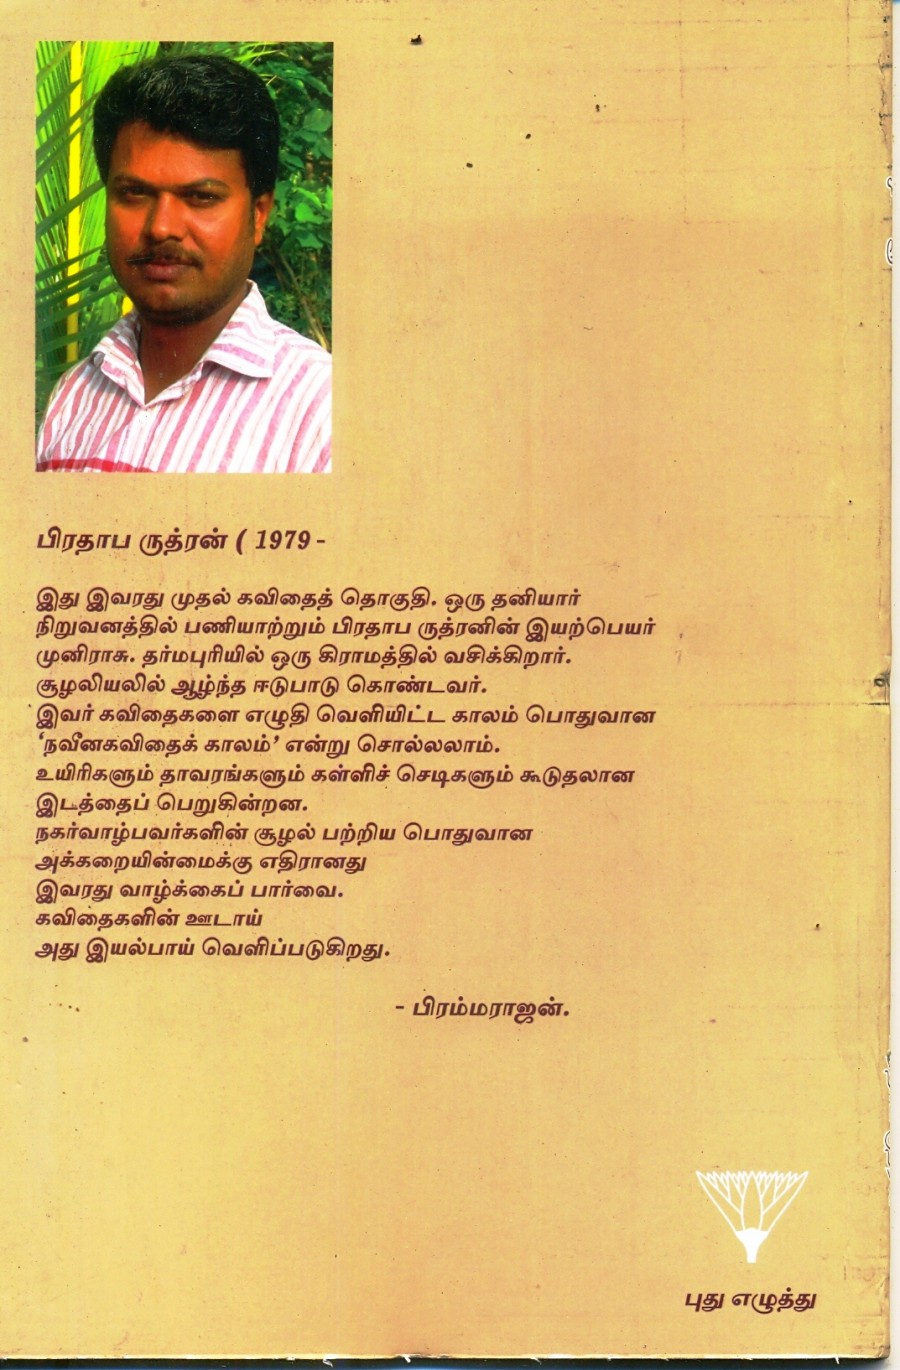 பிரதாப ருத்ரன் ( 1979 -
இது இவரது முதல் கவிதைத் தொகுதி. ஒரு தனியார்
நிறுவனத்தில் பணியாற்றும் பிரதாப ருத்ரனின் இயற்பெயர்
முனிராசு. தர்மபுரியில் ஒரு கிராமத்தில் வசிக்கிறார்.
சூழலியலில் ஆழ்ந்த ஈடுபாடு கொண்டவர்.
இவர் கவிதைகளை எழுதி வெளியிட்ட காலம் பொதுவான
‘நவீனகவிதைக் காலம்’ என்று சொல்லலாம்.
உயிரிகளும் தாவரங்களும் கள்ளிச் செடிகளும் கூடுதலான
இடத்தைப் பெறுகின்றன.
நகர்வாழ்பவர்களின் சூழல் பற்றிய பொதுவான
அக்கறையின்மைக்கு எதிரானது
இவரது வாழ்க்கைப் பார்வை.
கவிதைகளின் ஊடாய்
அது இயல்பாய் வெளிப்படுகிறது.
- பிரம்மராஜன்.
புது எழுத்து